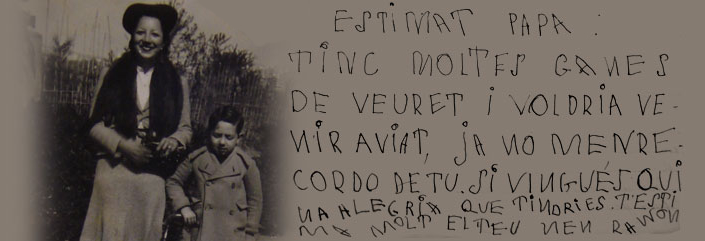 ESTIMAT PAPA :
TINC MOLTES GANES
DE VEURET I VOLDRIA VE-
NIR AVIAT, JA NO MENRE-
CORDO DETU. SI VINGUÉS QUI
NA ALEGRIA QUE TINDRIES. T'ESTI
MA MOLT ELTEU NEN RAMON